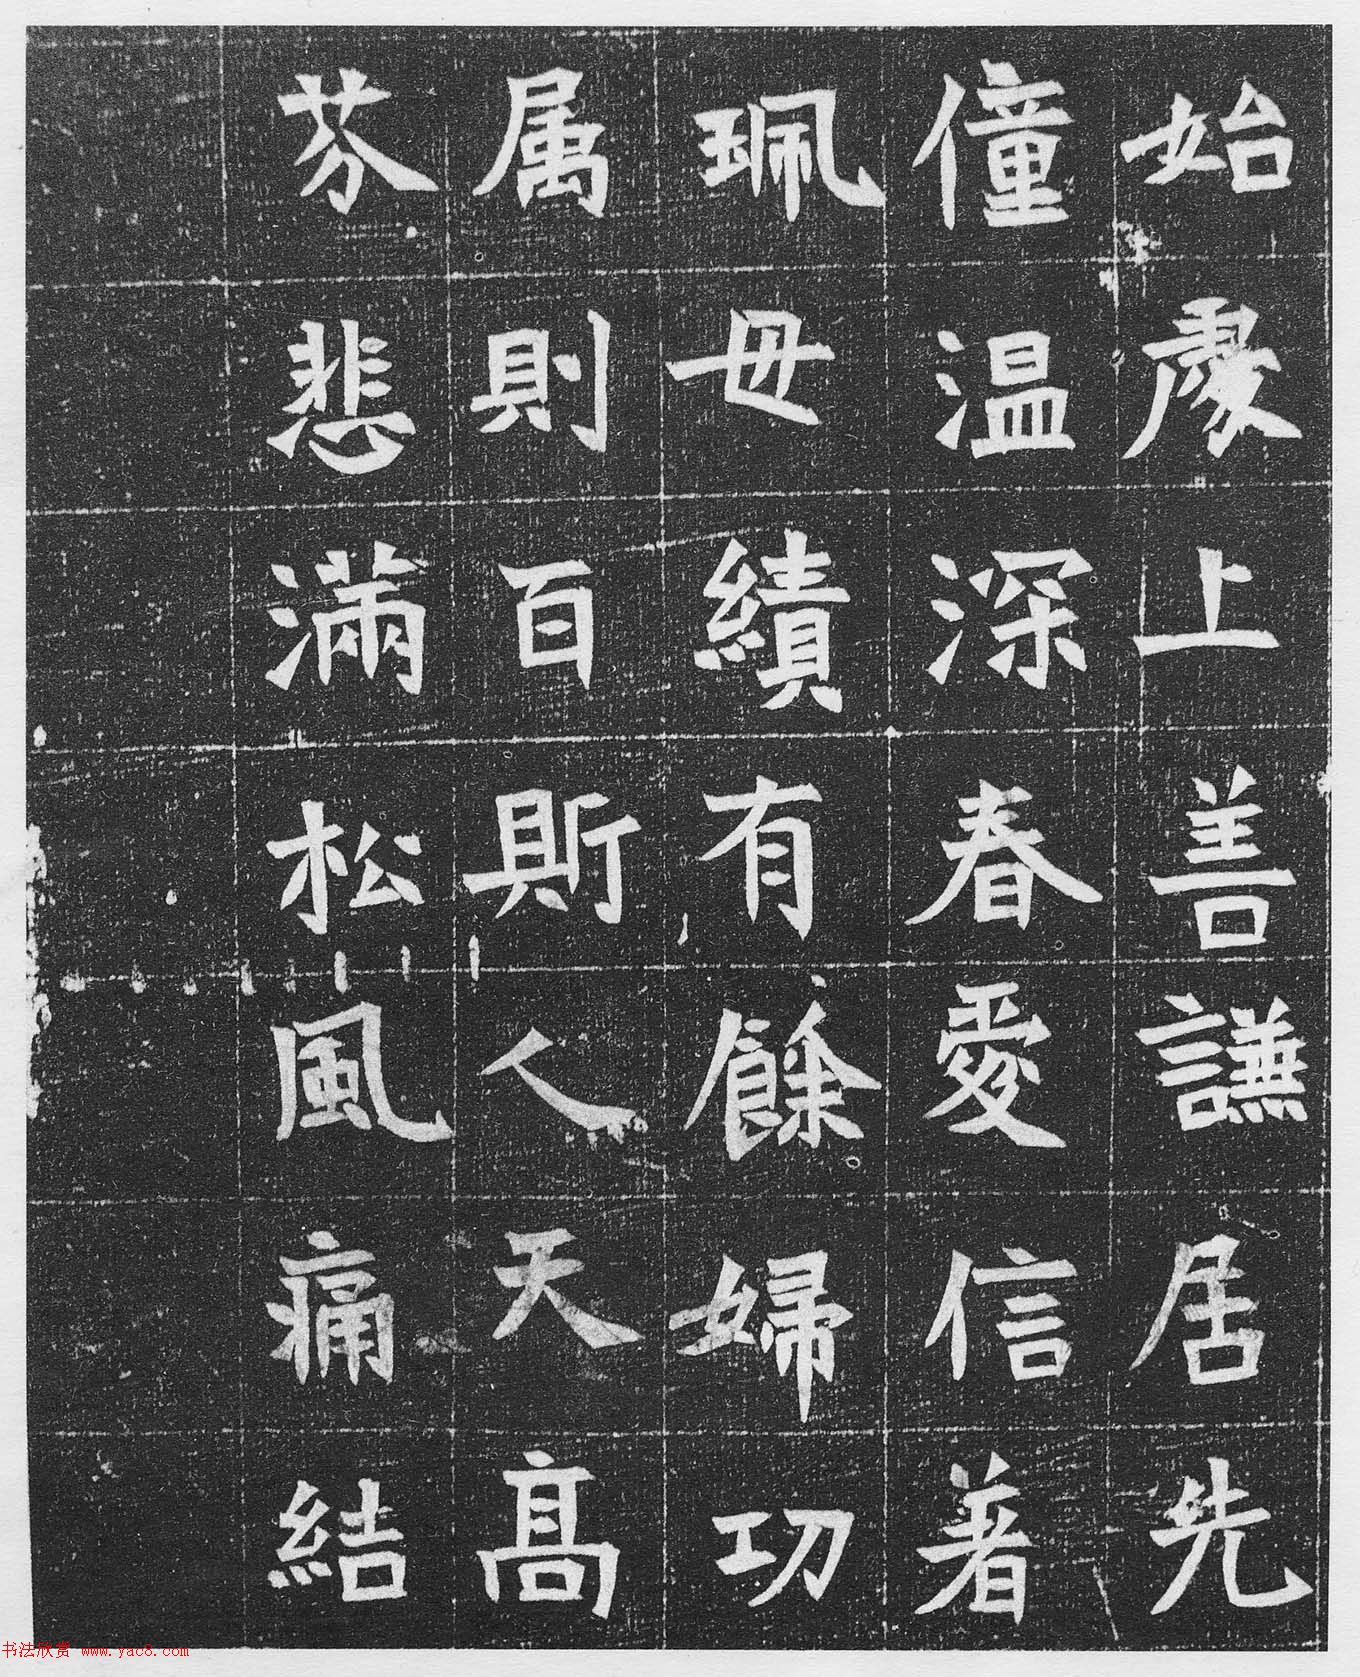 始豫上善謙居先
僮溫深春愛信著
珮毋績有餘婦功
属則百斯人天高
芬悲滿松風痛結
书法欣赏 www.yac8.com